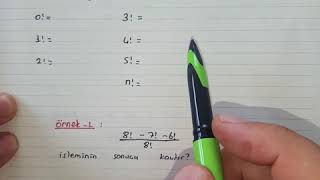 0! =
3! =
1! =
4! =
2! =
5! =
n! =
örnek-1 :
8! - 7! - 6!
8!
işleminin sonucu kaçtır?